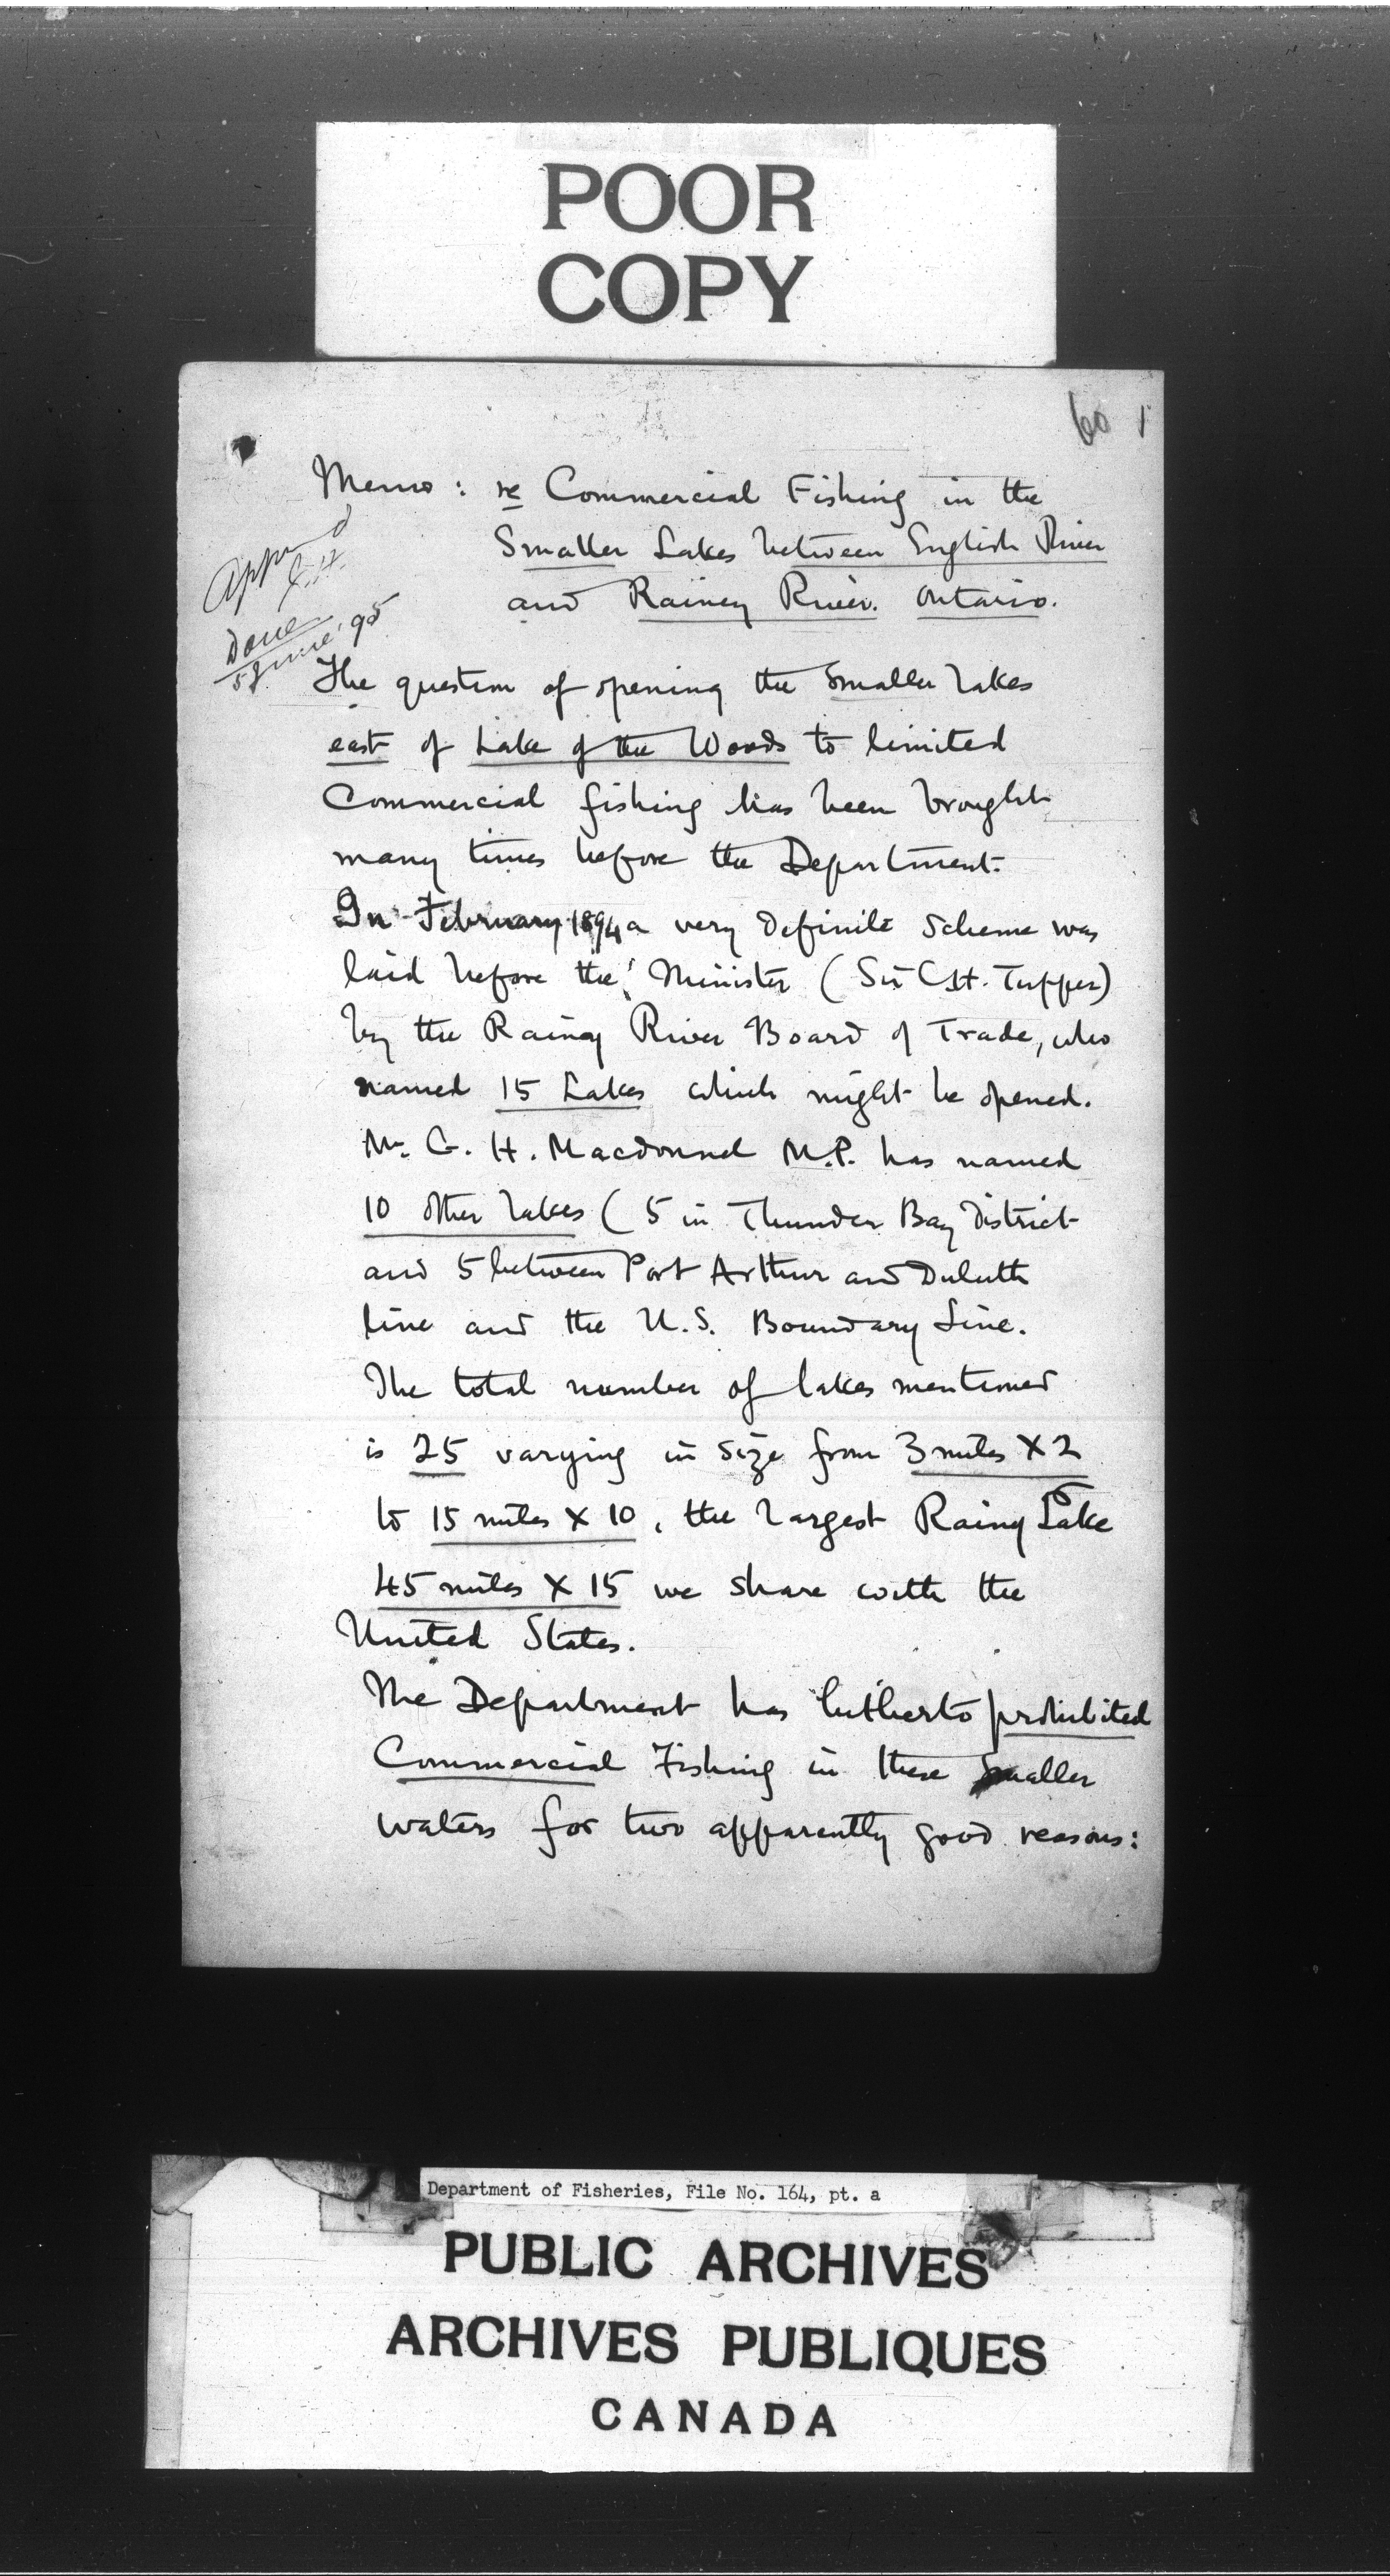 POOR
COPY
60 1
Memo: re Commercial Fishing in the
Smaller Lakes between English River
and Rainey River. Ontario.
Done
5 June '95
The question of opening the Smaller Lakes
east of Lake of the Woods to limited
Commercial fishing has been brought
many times before the Department.
In February 1894 a very definite Scheme was
laid before the Minister (Sir C.H. Tupper)
by the Rainy River Board of Trade, who
named 15 Lakes which might be opened.
Mr. G. H. Macdonnel M.P. has named
10 other lakes (5 in Thunder Bay District
and 5 between Port Arthur and Duluth
line and the U.S. Boundary Line.
The total number of lakes mentioned
is 25 varying in size from 3 miles X 2
to 15 miles X 10, the largest Rainy Lake
45 miles X 15 we share with the
United States.
The Department has hitherto prohibited
Commercial Fishing in these smaller
waters for two apparently good reasons:
Department of Fisheries, File No. 164, pt. a
PUBLIC ARCHIVES
ARCHIVES PUBLIQUES
CANADA